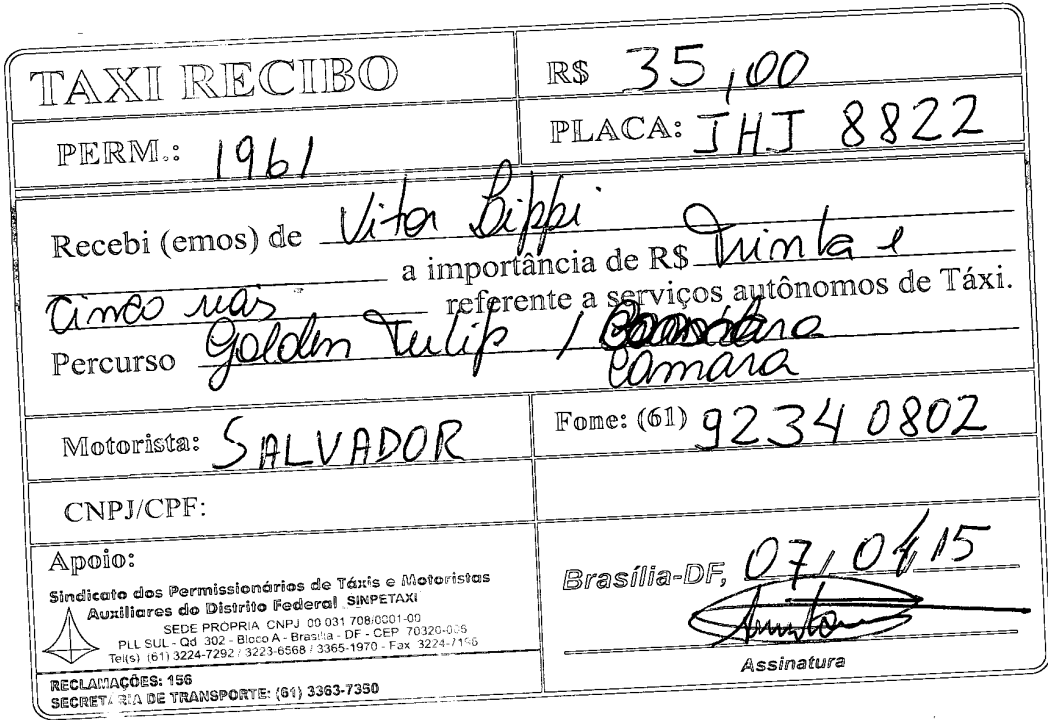 TAXI RECIBO
R$ 35,00
PERM.: 1961
PLACA: JHJ 8822
Recebi (emos) de Vitor Bippi
a importância de R$ Trinta e
Cinco reais referente a serviços autônomos de Táxi.
Percurso Golden Tulip /
Camara
Motorista: SALVADOR
Fone: (61) 9234 0802
CNPJ/CPF:
Apoio:
Sindicato dos Permissionários de Táxis e Motoristas
Auxiliares do Distrito Federal SINPETAXI
SEDE PROPRIA CNPJ 00 031 708/0001-00
PLL SUL - Qd 302 - Bloco A - Brasília - DF - CEP
Tel(s) (61) 3224-7292 / 3223-6568 / 3365-1970 - Fax
RECLAMAÇÕES: 156
SECRETARIA DE TRANSPORTE: (61) 3363-7350
Brasília-DF, 07/ /15
Assinatura